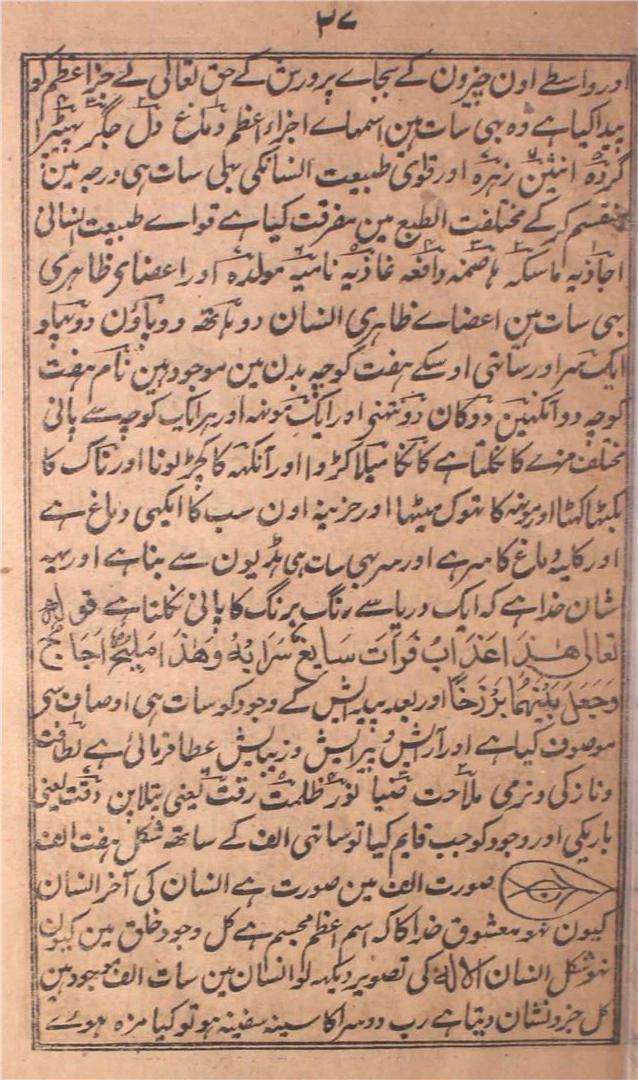 ۳۷
اور واسطے اون چیزون کے بجاے پرورش کے حق تعالی نے جزاعظم کو
پیدا کیا ہے وہ بہی سات ہین اسمہاے اجزاء اعظم دماغ دل جگر پہیپڑا
گردہ انثین زہرہ اور قواي طبیعت انسانکی پہلی سات ہی ورجہ مین
منقسم کر کے مختلفت الطبع مین مفرقت کیا ہے قواے طبیعت انسانی
اجاذبہ ماسکہ ہاضمہ دافعہ غاذیہ نامیہ مولدہ اور اعضاي ظاہری
بہی سات ہین اعضاے ظاہری انسان دو ہاتھ دو پاؤن دو پہلو
ایک سر اور ساتہی اوسکے ہفت کوچہ بدن مین موجود ہین نام ہفت
کوچہ دو آنکہین دو کان دو نتہنی اور ایک مونہہ اور ہر ایک کوچہ سے پانی
مختلف مزے کا نکلتا ہے کانکا میلا کڑوا اور آنکہہ کا کچڑ لونا اور ناک کا
کہٹا اور مونہہ کا تہوک میٹہا اور خزینہ اون سب کا ایکہی دماغ ہے
اور کاسہ دماغ کا سر ہے اور سر بہی سات ہی ہڈیون سے بنا ہے اور یہہ
شان خدا ہے کہ ایک دریا سے رنگ برنگ کا پانی نکلتا ہے قولہ
تعالی هٰذَا عَذَابُ فُرَاتَ سَایِغُ شَرَابُهٗ وَهٰذَا مِلْحُ اُجَاجُ
وَجَعَلَ بَیْنَهُمَا بَرْزَخًا اور بعد پیدایش کے وجود کو سات ہی اوصاف سی
موصوف کیا ہے اور آرایش و پیرایش و زیبایش عطا فرمائی ہے لطافت
و نازکی و نرمی ملاحت ضیا نور ظلمت رقت یعنی پتلاپن دقت یعنی
باریکی اور وجود کو جب قایم کیا تو ساتہی الف کے ساتھ شکل ہفت الف
صورت الف مین صورت ہے انسان کی آخر انسان
کیون نہو معشوق خدا کا کہ اسم اعظم مجسم ہے کل وجود خلق مین کیون
نہو شکل انسان الا لہ کی تصویر دیکہہ لو انسان مین سات الف موجود ہین
کل جزو نشان دیتا ہے رب دوسرا کا سینہ سفینہ ہو تو کیا مزہ ہوے